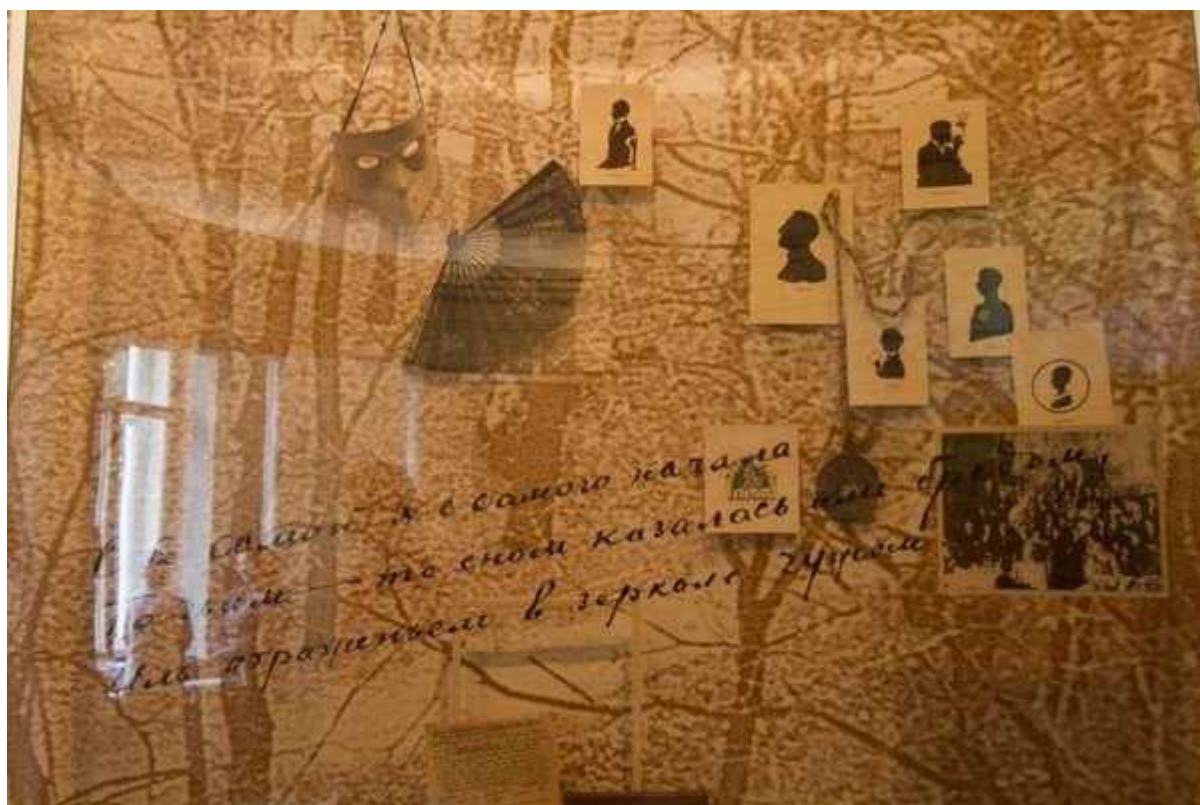 Себе самой я с самого начала
То чьим-то сном казалась или бредом,
Иль отраженьем в зеркале чужом